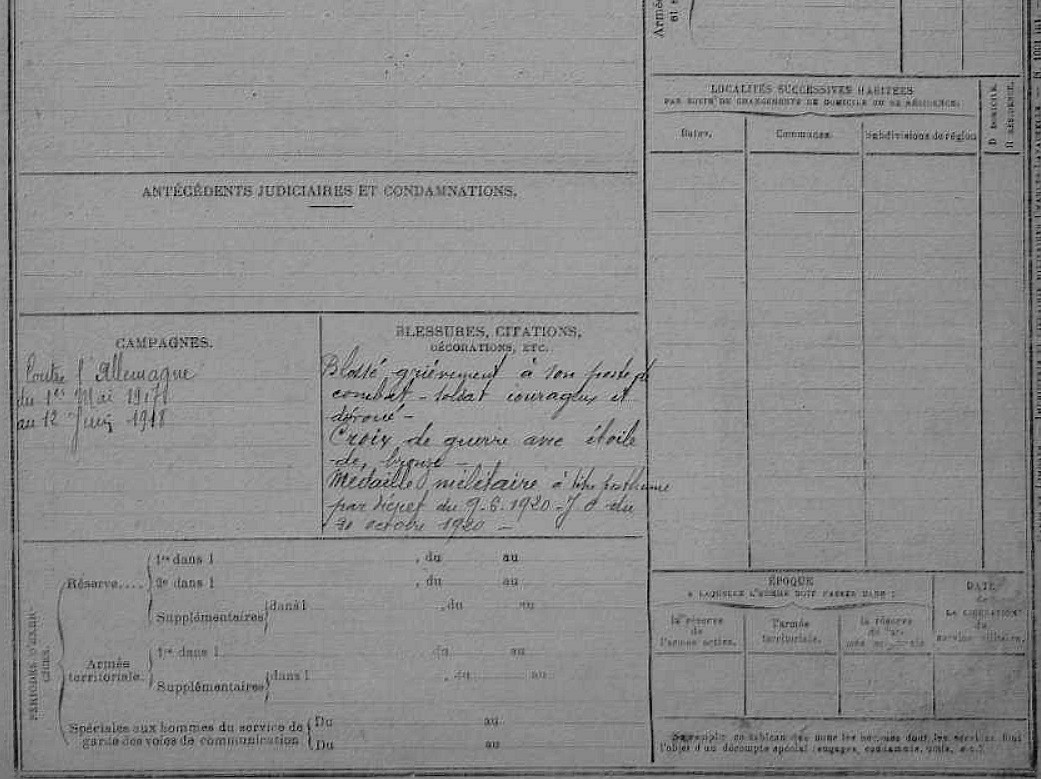 Armée
et
LOCALITÉS SUCCESSIVES HABITÉES
PAR SUITE DE CHANGEMENTS DE DOMICILE OU DE RÉSIDENCE.
Dates.
Communes.
Subdivisions de région
D DOMICILE.
R RÉSIDENCE.
ANTÉCÉDENTS JUDICIAIRES ET CONDAMNATIONS.
CAMPAGNES.
Contre l'Allemagne
du 1er Mai 1917
au 12 Juin 1918
BLESSURES, CITATIONS,
DÉCORATIONS, ETC.
Blessé grièvement à son poste de
combat - soldat courageux et
dévoué -
Croix de guerre avec étoile
de bronze -
Médaille militaire à titre posthume
par décret du 9.6.1920 - J O du
octobre 1920 -
PÉRIODES D'EXERCICES.
Réserve....
1re dans l , du au
2e dans l , du au
Supplémentaires dans l , du au
Armée
territoriale.
1re dans l du au
Supplémentaires dans l , du au
Spéciales aux hommes du service de
garde des voies de communication
Du au
Du au
ÉPOQUE
A LAQUELLE L'HOMME DOIT PASSER DANS :
la réserve
de
l'armée active.
l'armée
territoriale.
la réserve
de l'ar-
mée
DATE
de
LA LIBÉRATION
du
service militaire.
ce tableau que pour les hommes dont les services font
l'objet d'un décompte spécial (engagés, condamnés, omis, etc.)